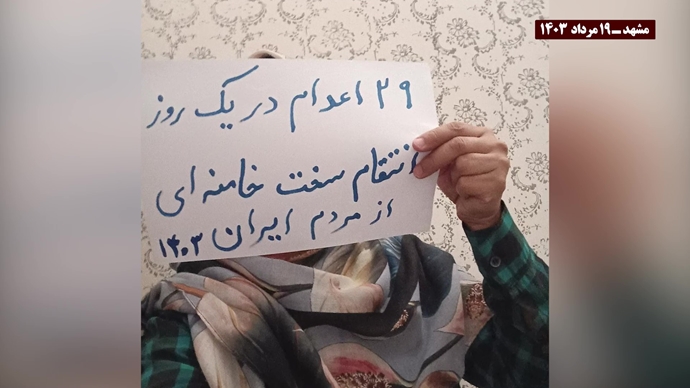 مشهد ـ ۱۹ مرداد ۱۴۰۳
۲۹ اعدام در یک روز
انتقام سخت خامنه‌ای
از مردم ایران ۱۴۰۳